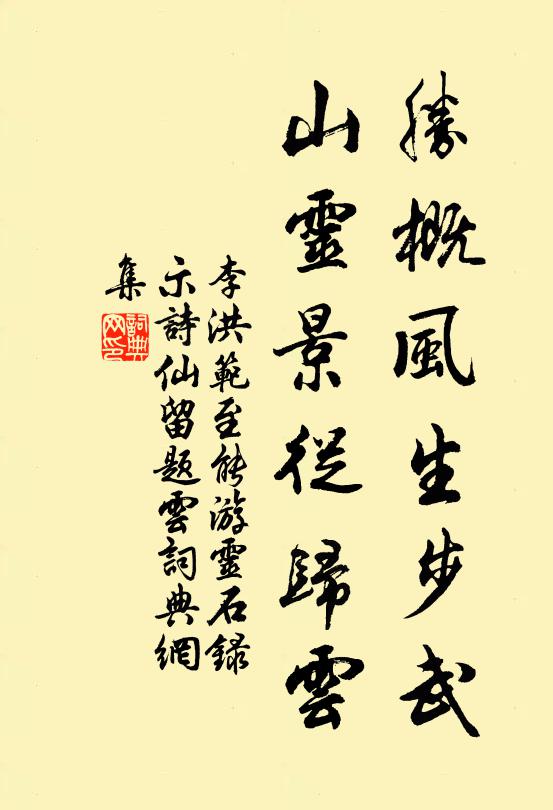 勝概風生步武
山靈景從歸雲
李洪範至能游靈石錄
示詩仙留題雲詞典網
集
詞典網印